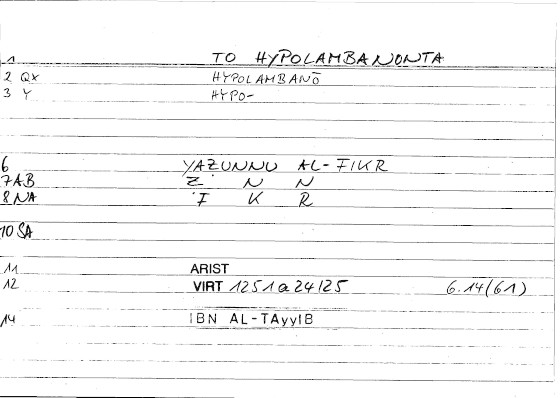 1 TO HYPOLAMBANONTA
2 QX HYPOLAMBANŌ
3 Y HYPO-
6 YAZUNNU AL-FIKR
7 AB Z N N
8 NA F K R
10 SA
11 ARIST
12 VIRT 1251a24/25 6.14(61)
14 IBN AL-TAyyIB